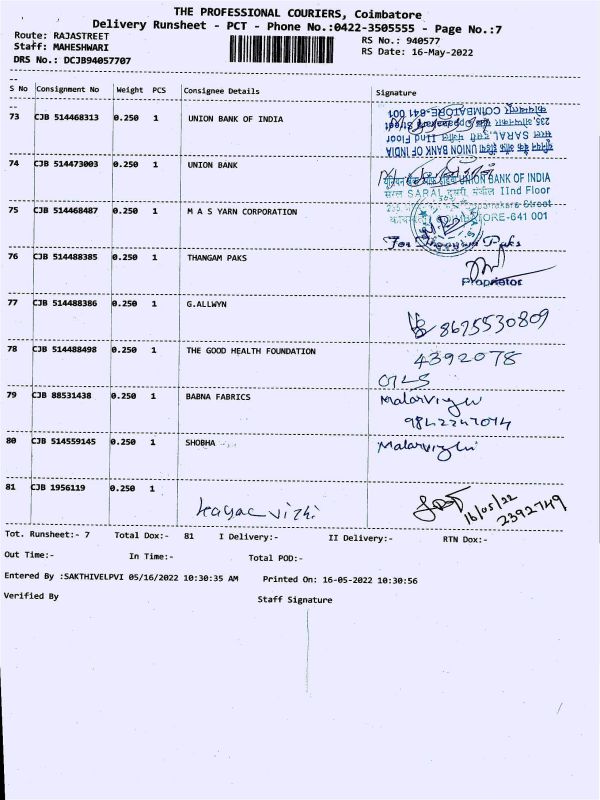 THE PROFESSIONAL COURIERS, Coimbatore
Delivery Runsheet - PCT - Phone No.:0422-3505555 - Page No.:7
Route: RAJASTREET
Staff: MAHESHWARI
DRS No.: DCJB94057707
RS No.: 940577
RS Date: 16-May-2022
S No Consignment No Weight PCS Consignee Details Signature
73 CJB 514468313 0.250 1 UNION BANK OF INDIA
यूनियन बैंक ऑफ इंडिया UNION BANK OF INDIA
सरल SARAL दूसरी मंजील IInd Floor
COIMBATORE-641 001
74 CJB 514473003 0.250 1 UNION BANK
UNION BANK OF INDIA
सरल SARAL दूसरी मंजील IInd Floor
Street
COIMBATORE-641 001
75 CJB 514468487 0.250 1 M A S YARN CORPORATION
For Thangam Paks
76 CJB 514488385 0.250 1 THANGAM PAKS
Proprietor
77 CJB 514488386 0.250 1 G.ALLWYN
8675530809
78 CJB 514488498 0.250 1 THE GOOD HEALTH FOUNDATION
4392078
79 CJB 88531438 0.250 1 BABNA FABRICS
9842247074
80 CJB 514559145 0.250 1 SHOBHA
Malarvizhi
81 CJB 1956119 0.250 1
16/05/22
2392749
Tot. Runsheet:- 7 Total Dox:- 81 I Delivery:- II Delivery:- RTN Dox:-
Out Time:- In Time:- Total POD:-
Entered By :SAKTHIVELPVI 05/16/2022 10:30:35 AM Printed On: 16-05-2022 10:30:56
Verified By Staff Signature